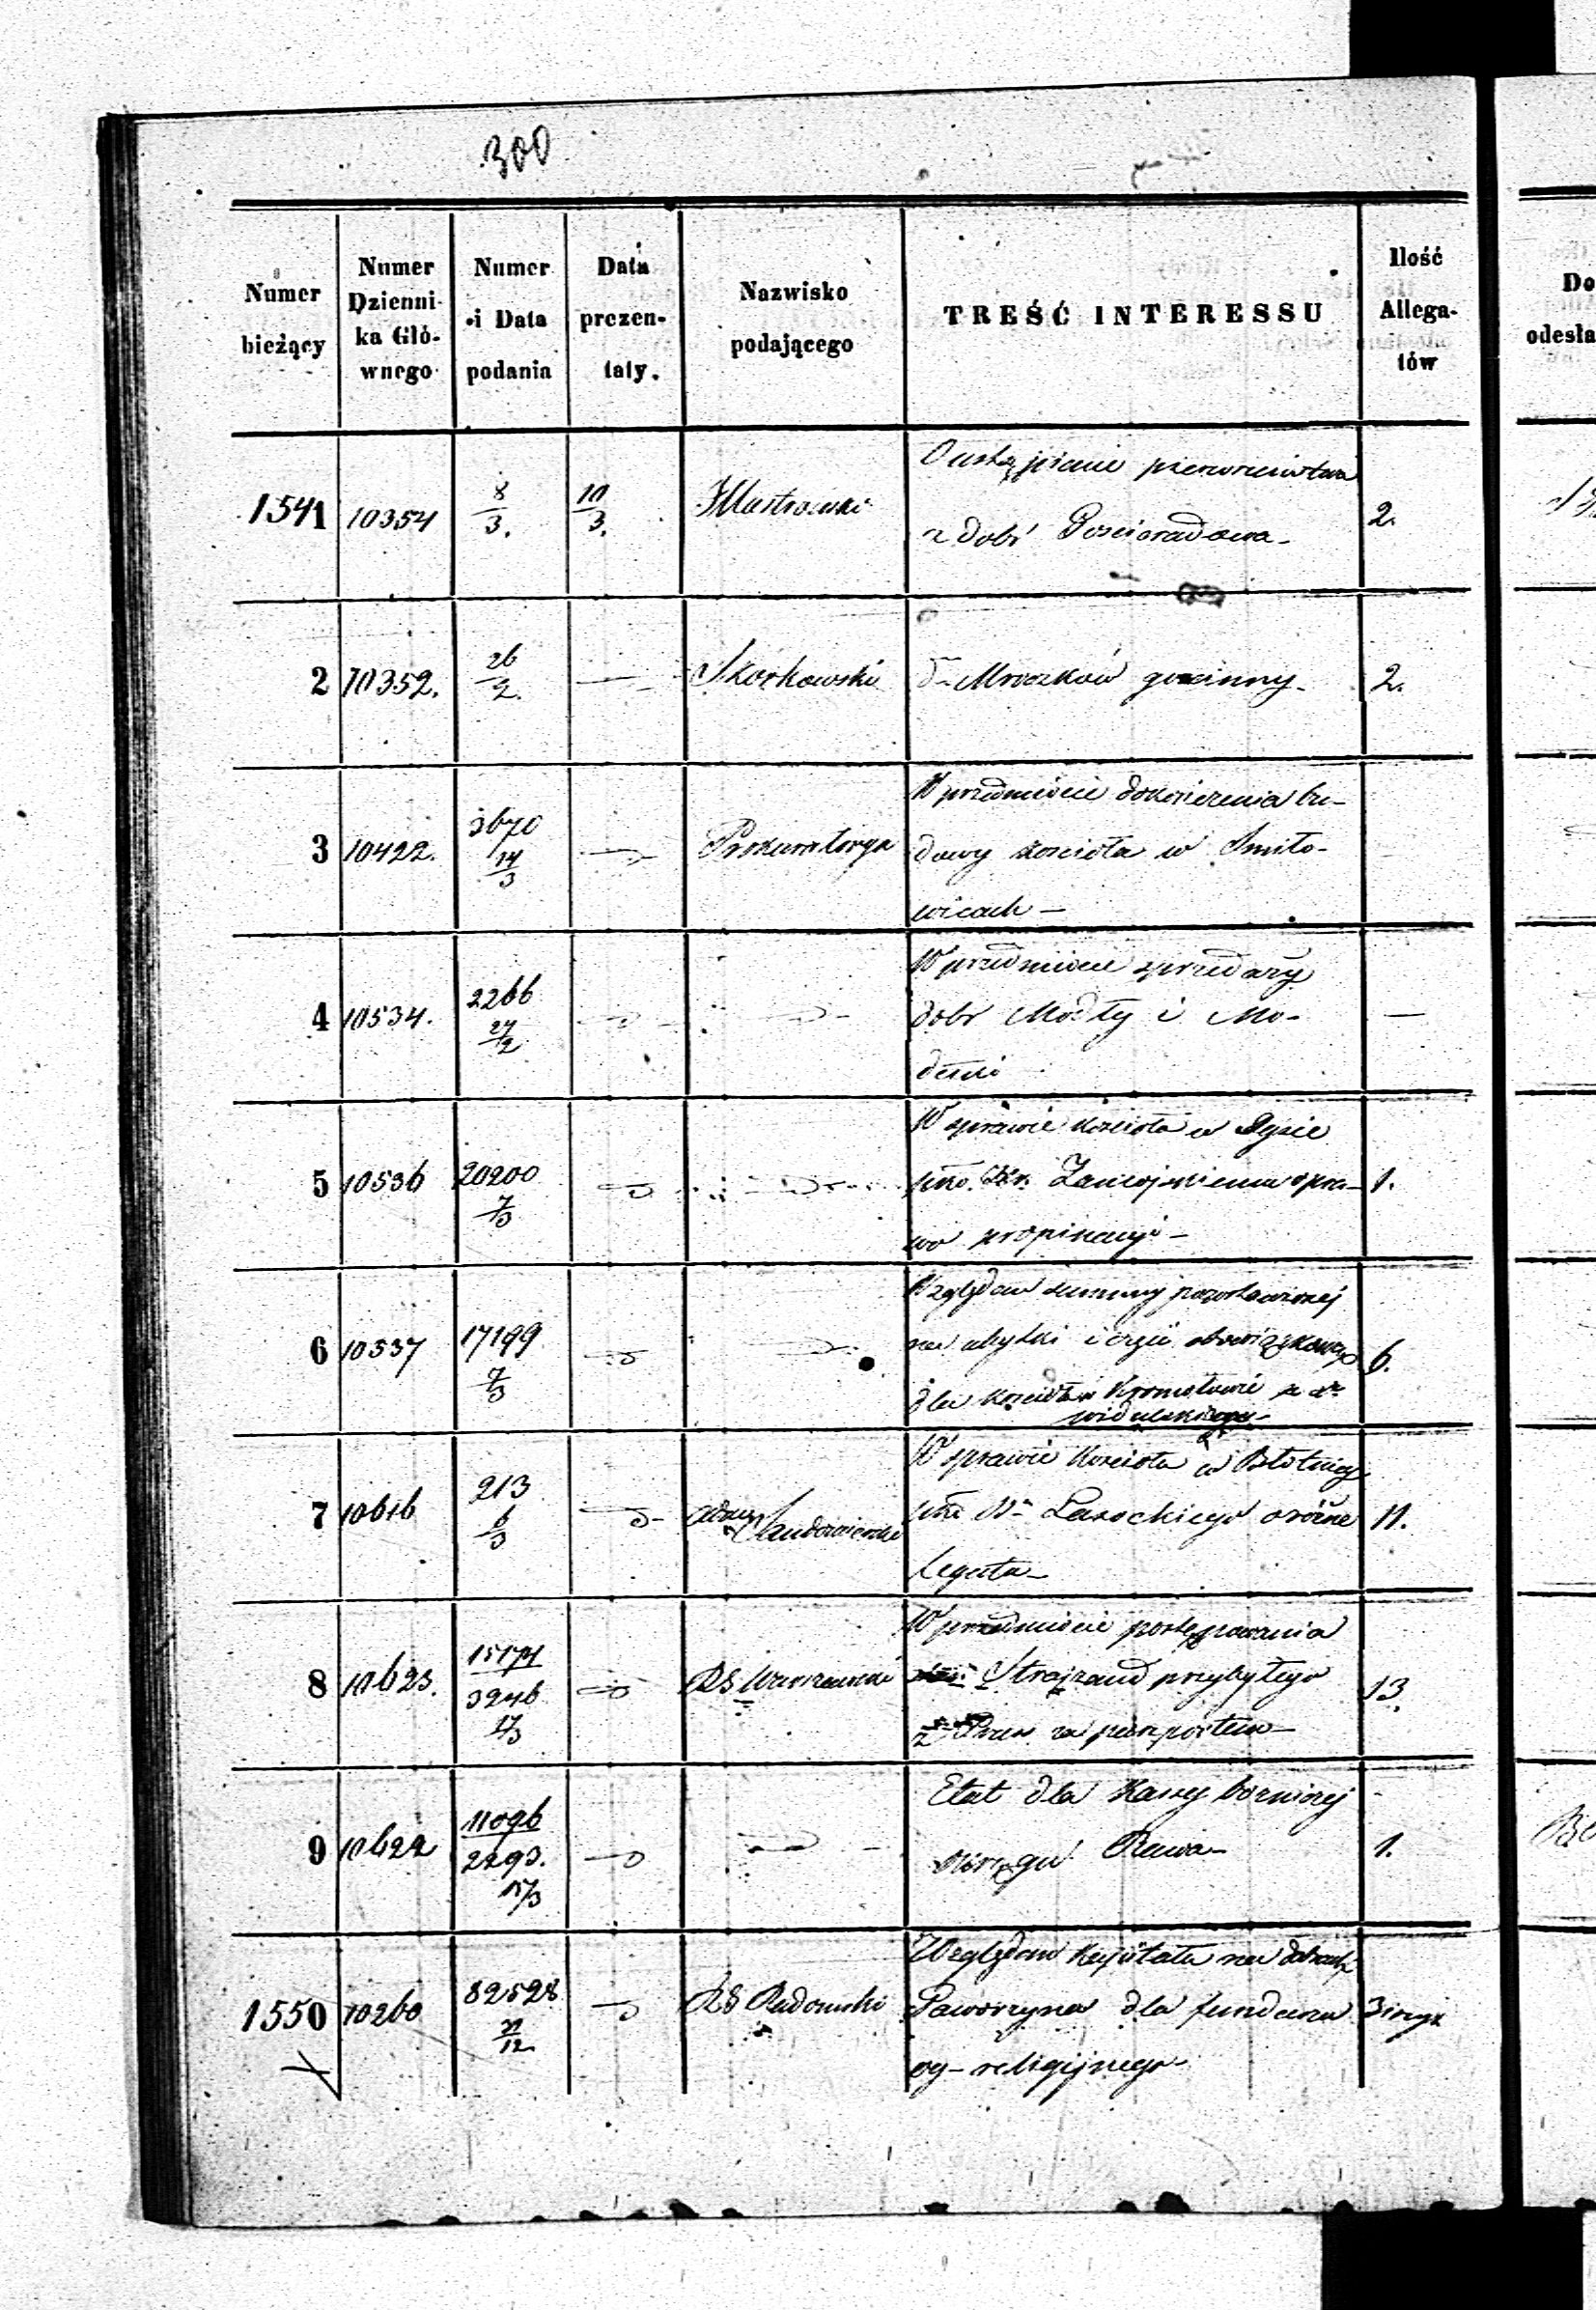 300
Numer bieżący
Numer Dzienni- ka Głó- wnego
Numer i Data podania
Data prezen- taty.
Nazwisko podającego
TREŚĆ INTERESSU
Ilość Allega- tów
Do
odesła
1541 10354 8/3. 10/3.
O ustąpienie pierwszeństwa
z dóbr Gościeradowa - 2.
2 10352. 26/2. — Skorkowski do Mroczków gościnny - 2.
3 10422. 3670 14/3 Prokuratorya
W przedmiocie dokończenia bu-
dowy kościoła w Smiło-
wicach -
4 10534. 2266 27/2
W przedmiocie sprzedaży
dóbr Modły i Mo-
dełki —
5 10536 20200 7/3
W sprawie kościoła w Dysie
pko. Zamojskiemu o pra- 1.
wo propinacyi -
6 10537 17199 7/3
Względem summy pozostawionej
na 6.
dla kościoła w Kromołowie
7 10616 213 6/3 Sandomierski
W sprawie Kościoła w Błotnicy
pko Lasockiego o różne 11.
legata -
8 10623. 15174 3246 17/3 RG Warszawski
W przedmiocie postępowania
Strajzand przybyłego 13.
z Prus za paszportem -
9 10622 11096 2293. 15/3
Etat dla Kassy bożniczej
okręgu Rawa - 1.
1550 10260 82528 /12 RG Radomski
Względem kapitału na dobrach
Jaworzyna dla funduszu
og - religijnego -